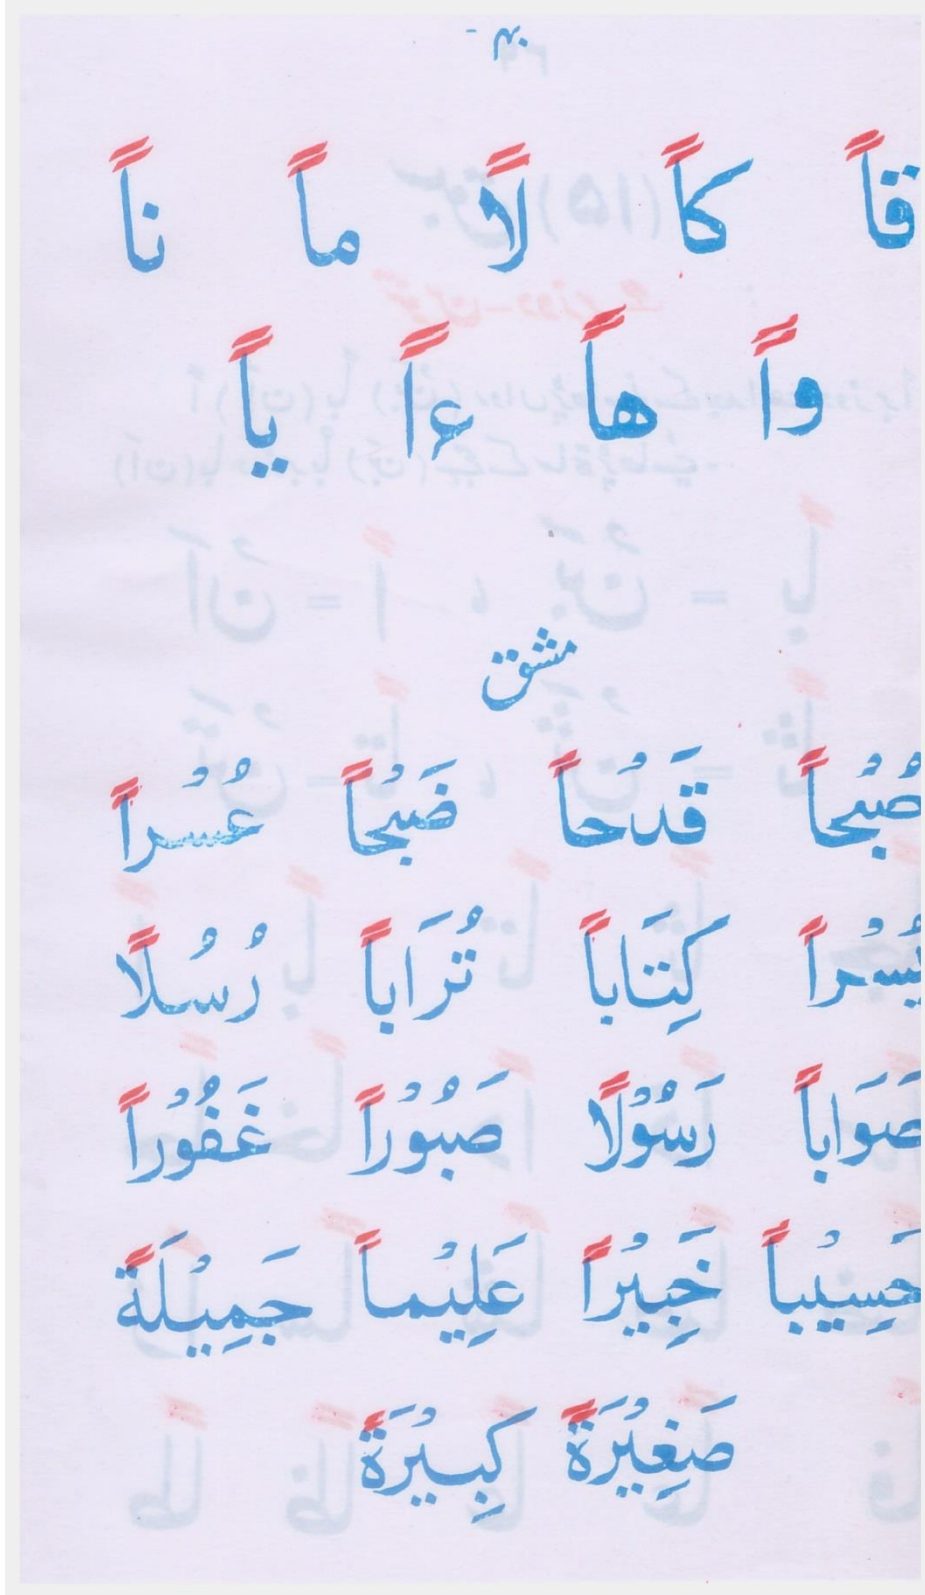 ۳۰
قاً كاً لاً ماً ناً
واً هاً ءاً ياً
مشق
صُبْحاً قَدْحاً ضَبْحاً عُسْراً
يُسْراً كِتَاباً تُرَاباً رُسُلاً
صَوَاباً رَسُوْلاً صَبُوْراً غَفُوْراً
حَسِيْباً خَبِيْراً عَلِيْماً جَمِيْلَةً
صَغِيْرَةً كَبِيْرَةً